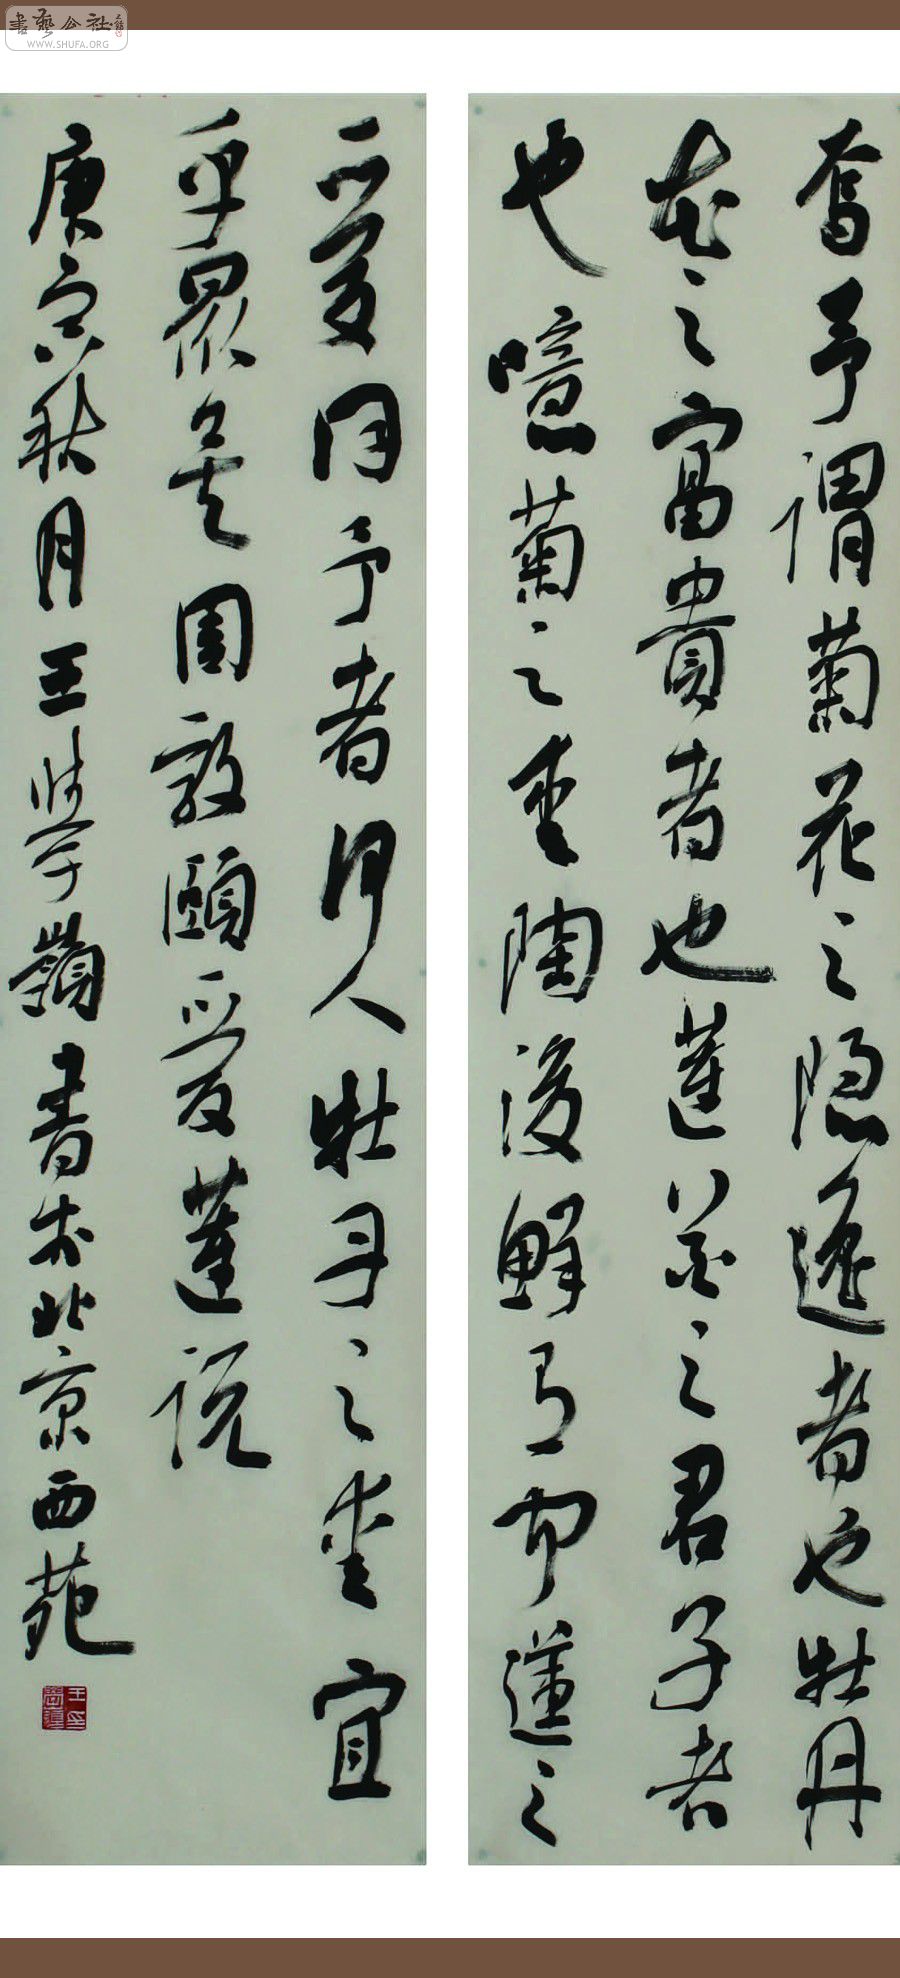 書藝公社
WWW.SHUFA.ORG
焉予謂菊花之隱逸者也牡丹
花之富貴者也蓮花之君子者
也噫菊之愛陶後鮮有聞蓮之
愛同予者何人牡丹之愛宜
乎眾矣周敦頤愛蓮說
庚寅秋月王學嶺書於北京西苑
王學嶺印